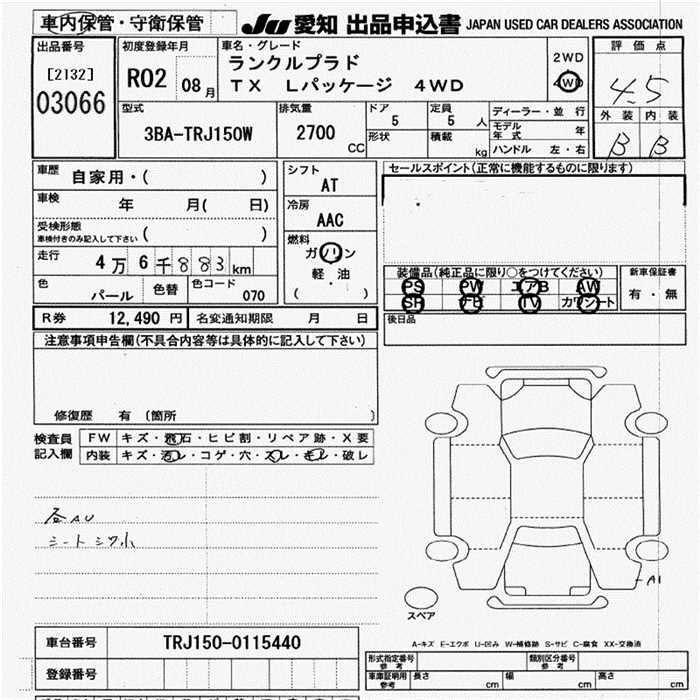 車内保管・守衛保管
JU 愛知 出品申込書 JAPAN USED CAR DEALERS ASSOCIATION
出品番号
[2132]
03066
初度登録年月
R02 08月
車名・グレード
ランクルプラド
TX Lパッケージ 4WD
2WD
4WD
評価点
4.5
外装 内装
B B
型式
3BA-TRJ150W
排気量
2700 CC
ドア 5
形状
定員 5 人
積載 kg
ディーラー・並行
モデル年式 年
ハンドル 左・右
車歴 自家用・( )
車検 年 月( 日)
受検形態
車検付きのみ記入して下さい ( )
走行 4万6千883km
色 パール
色替
色コード 070
シフト
AT
冷房
AAC
燃料
ガソリン
軽・油
( )
セールスポイント(正常に機能するものに限ります)
装備品(純正品に限り○をつけてください)
PS PW エアB AW
SR ナビ TV カワシート
新車保証書
有・無
後日品
R券 12,490円 名変通知期限 月 日
注意事項申告欄(不具合内容等は具体的に記入して下さい)
修復歴 有 〔箇所 〕
検査員記入欄
FW キズ・飛石・ヒビ割・リペア跡・X要
内装 キズ・汚レ・コゲ・穴・スレ・キレ・破レ
各AU
シートシワ小
A1
スペア
A-キズ E-エクボ U-凹み W-補修跡 S-サビ C-腐食 XX-交換済
車台番号 TRJ150-0115440
登録番号
形式指定番号 参考
類別区分番号 参考
車庫証明用 参考
長さ cm 幅 cm 高さ cm